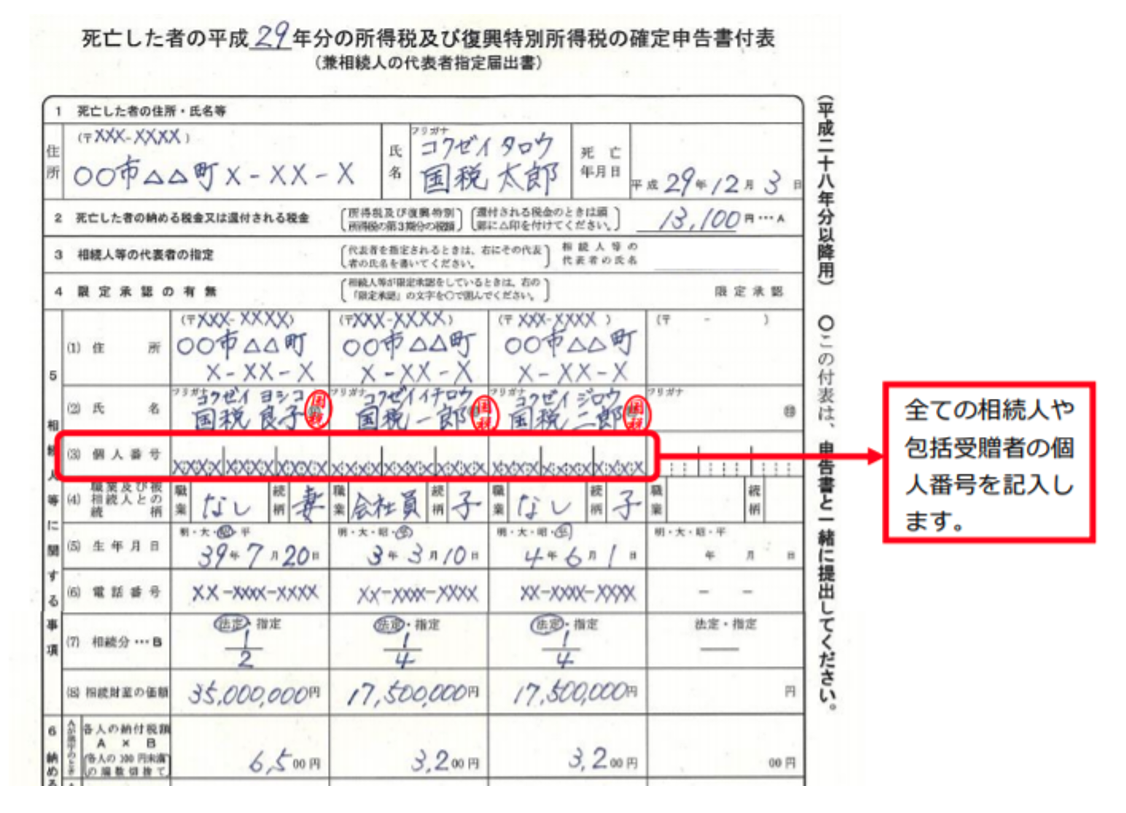 死亡した者の平成29年分の所得税及び復興特別所得税の確定申告書付表
（兼相続人の代表者指定届出書）
1 死亡した者の住所・氏名等
住所
（〒XXX-XXXX）
○○市△△町X-XX-X
氏名
フリガナ
コクゼイ タロウ
国税 太郎
死亡年月日
平成29年12月3日
2 死亡した者の納める税金又は還付される税金
〔所得税及び復興特別所得税の第3期分の税額〕
〔還付される税金のときは頭部に△印を付けてください。〕
13,100円…A
3 相続人等の代表者の指定
〔代表者を指定されるときは、右にその代表者の氏名を書いてください。〕
相続人等の代表者の氏名
4 限定承認の有無
〔相続人等が限定承認をしているときは、右の「限定承認」の文字を○で囲んでください。〕
限定承認
5 相続人等に関する事項
(1) 住所
（〒XXX-XXXX）
○○市△△町
X-XX-X
（〒XXX-XXXX）
○○市△△町
X-XX-X
（〒XXX-XXXX）
○○市△△町
X-XX-X
（〒 - ）
(2) 氏名
フリガナ
コクゼイ ヨシコ
国税 良子
国税
フリガナ
コクゼイ イチロウ
国税 一郎
国税
フリガナ
コクゼイ ジロウ
国税 二郎
国税
フリガナ
㊞
(3) 個人番号
XXXX XXXX XXXX
XXXX XXXX XXXX
XXXX XXXX XXXX
(4) 職業及び被相続人との続柄
職業 なし 続柄 妻
職業 会社員 続柄 子
職業 なし 続柄 子
職業 続柄
(5) 生年月日
明・大・昭・平
39年7月20日
明・大・昭・平
3年3月10日
明・大・昭・平
4年6月1日
明・大・昭・平
年 月 日
(6) 電話番号
XX-XXXX-XXXX
XX-XXXX-XXXX
XX-XXXX-XXXX
− −
(7) 相続分…B
法定・指定
1/2
法定・指定
1/4
法定・指定
1/4
法定・指定
(8) 相続財産の価額
35,000,000円
17,500,000円
17,500,000円
円
6 納める
各人の納付税額
A × B
（各人の100円未満の端数切捨て）
6,500円
3,200円
3,200円
00円
（平成二十八年分以降用）
○この付表は、申告書と一緒に提出してください。
全ての相続人や
包括受贈者の個
人番号を記入し
ます。